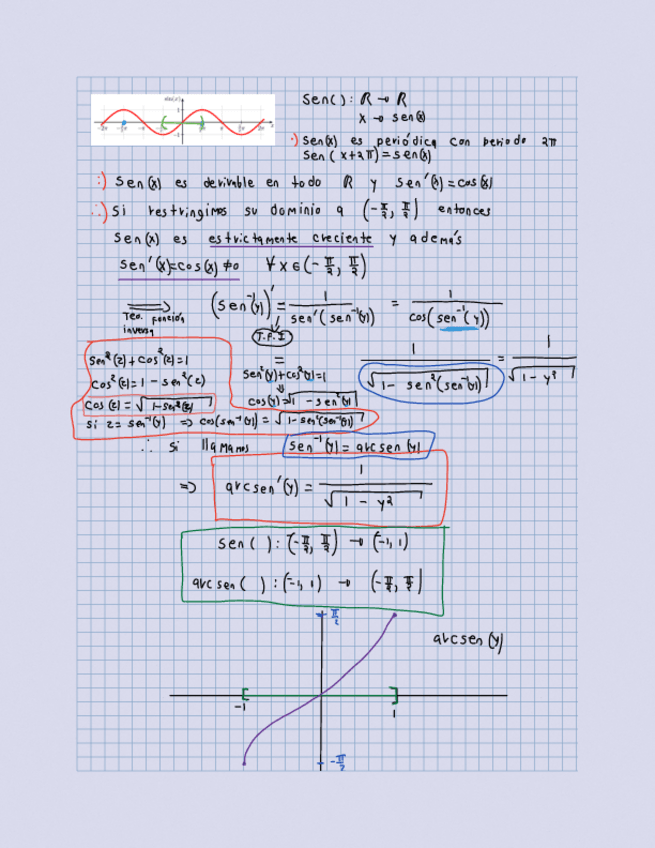 sen(x)
Sen( ): ℝ → ℝ
x → sen(x)
·) Sen(x) es periódica con periodo 2π
Sen(x+2π)=sen(x)
:) Sen(x) es derivable en todo ℝ y sen'(x)=cos(x)
∴) Si restringimos su dominio a (-π/2, π/2) entonces
Sen(x) es estrictamente creciente y además
sen'(x)=cos(x)≠0 ∀x∈(-π/2, π/2)
⟹ (sen⁻¹(y))' = 1/sen'(sen⁻¹(y)) = 1/cos(sen⁻¹(y))
Teo. función
inversa
T.F.I
= 1/√(1-sen²(sen⁻¹(y))) = 1/√(1-y²)
sen²(z)+cos²(z)=1
cos²(z)=1-sen²(z)
cos(z)=√(1-sen²(z))
si z=sen⁻¹(y) => cos(sen⁻¹(y))=√(1-sen²(sen⁻¹(y)))
sen²(y)+cos²(y)=1
⇓
cos(y)=√(1-sen²(y))
∴ si llamamos sen⁻¹(y)=arcsen(y)
=> arcsen'(y) = 1/√(1-y²)
sen( ): (-π/2, π/2) → (-1,1)
arcsen( ): (-1,1) → (-π/2, π/2)
π/2
arcsen(y)
-1
1
-π/2